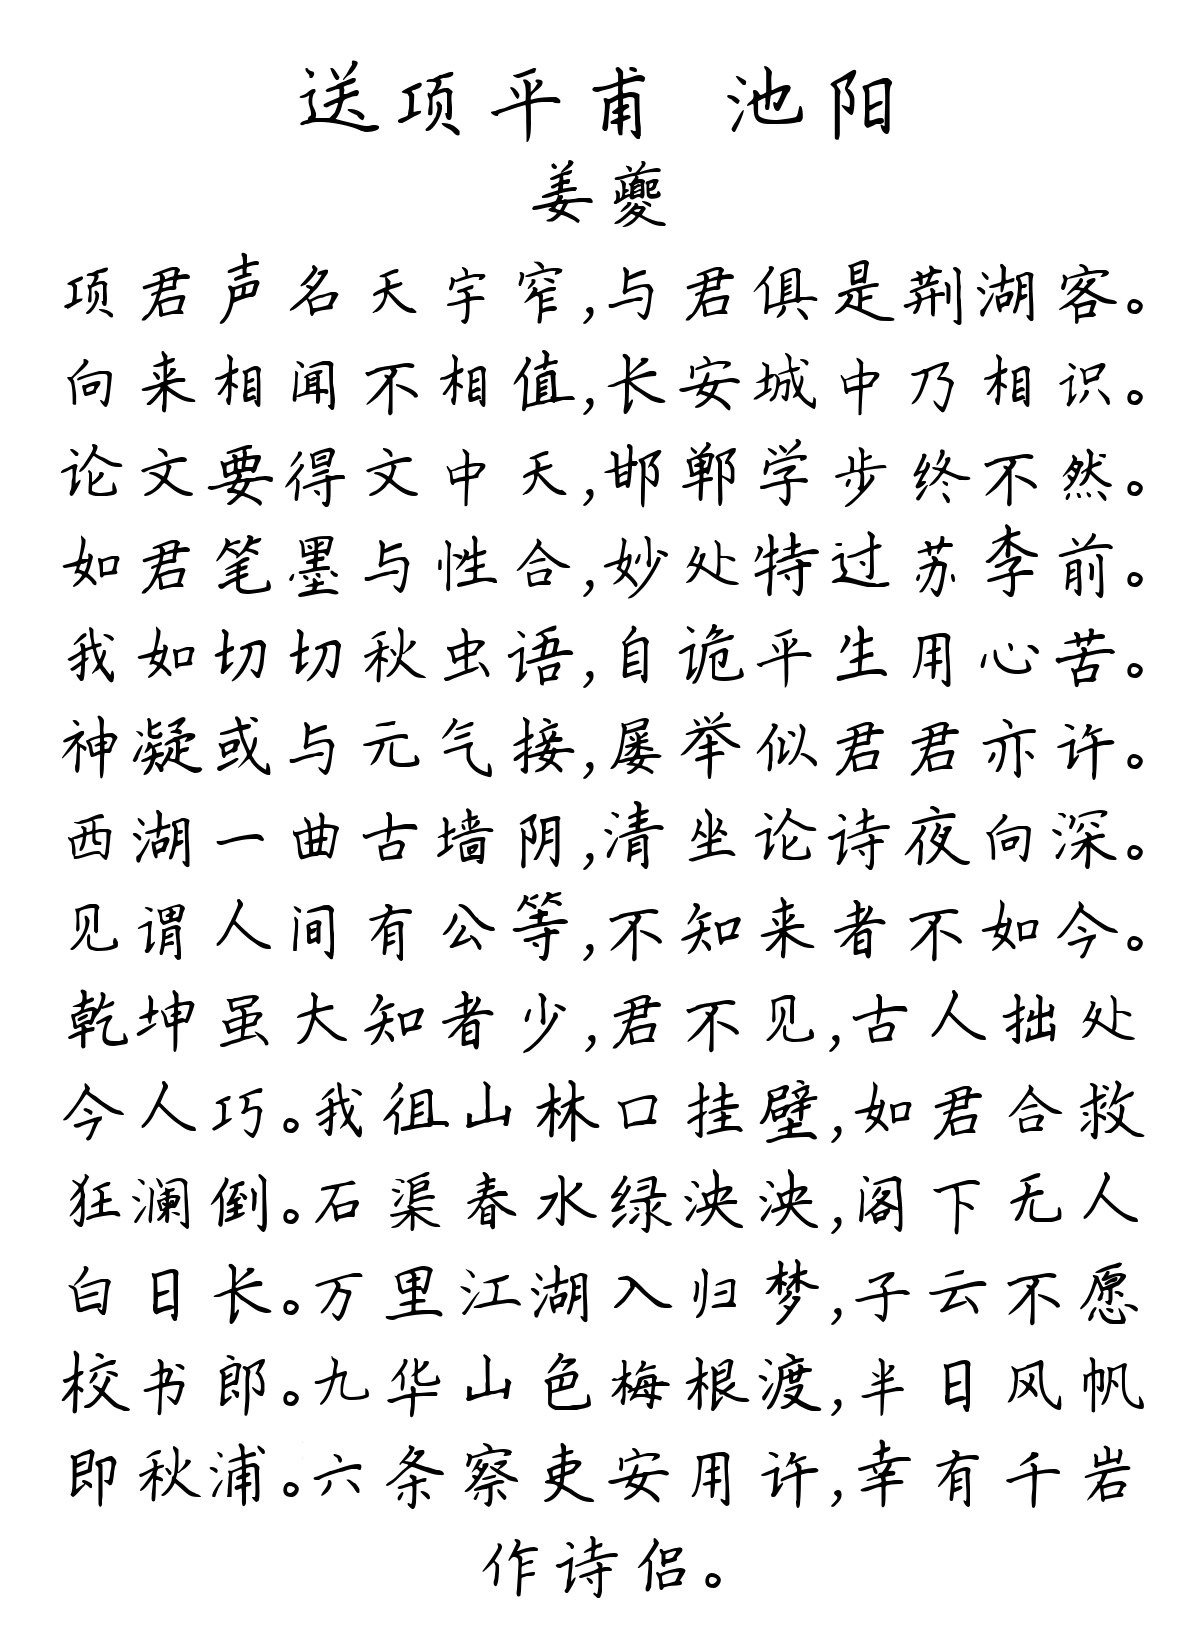 送项平甫 池阳
姜夔
项君声名天宇窄,与君俱是荆湖客。
向来相闻不相值,长安城中乃相识。
论文要得文中天,邯郸学步终不然。
如君笔墨与性合,妙处特过苏李前。
我如切切秋虫语,自诡平生用心苦。
神凝或与元气接,屡举似君君亦许。
西湖一曲古墙阴,清坐论诗夜向深。
见谓人间有公等,不知来者不如今。
乾坤虽大知者少,君不见,古人拙处
今人巧。我徂山林口挂壁,如君合救
狂澜倒。石渠春水绿泱泱,阁下无人
白日长。万里江湖入归梦,子云不愿
校书郎。九华山色梅根渡,半日风帆
即秋浦。六条察吏安用许,幸有千岩
作诗侣。